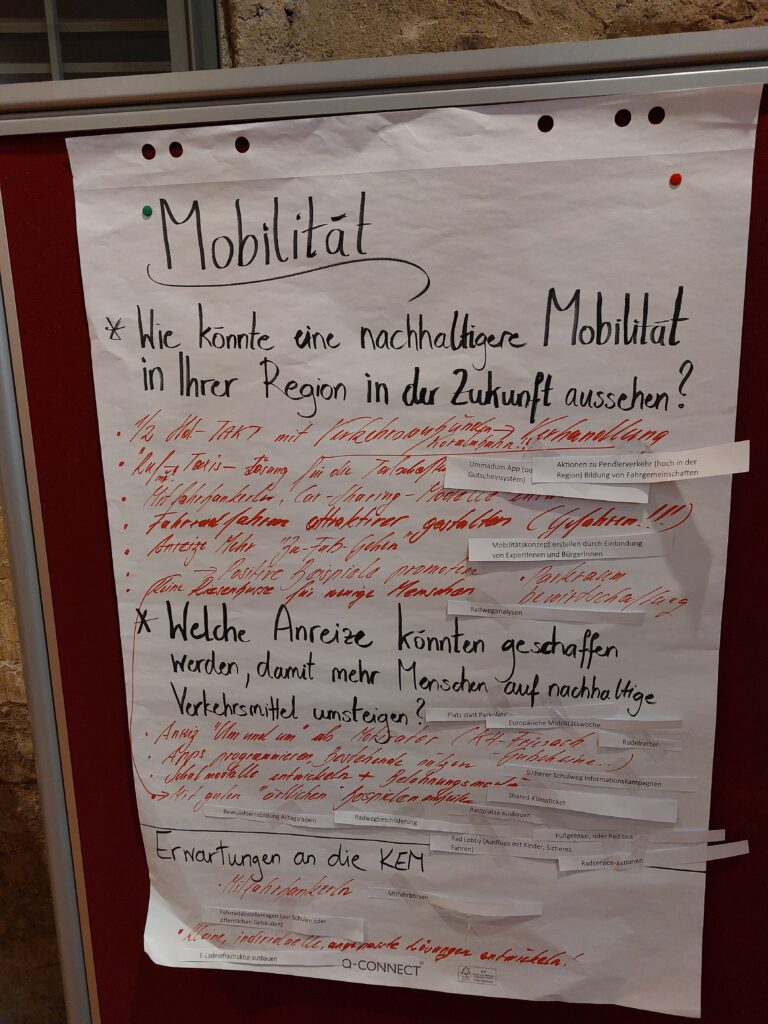 Mobilität
* Wie könnte eine nachhaltigere Mobilität
in Ihrer Region in der Zukunft aussehen?
• 1/2 Std-TAKT mit → Verhandlung
• Ruf-Taxis-Lösung für die
Ummadum App (od
Gutscheinsystem)
Aktionen zu Pendlerverkehr (hoch in der
Region) Bildung von Fahrgemeinschaften
• Mitfahrbankerln, Car-Sharing-Modelle
• Fahrradfahren attraktiver gestalten (Gefahren!!!)
• Anreize Mehr "Zu-Fuß-Gehen"
Mobilitätskonzept erstellen durch Einbindung
von ExpertInnen und BürgerInnen
→ Positive Beispiele promoten
• Parkraum
bewirtschaftung
• für wenige Menschen
Radweganalysen
* Welche Anreize könnten geschaffen
werden, damit mehr Menschen auf nachhaltige
Verkehrsmittel umsteigen?
Platz statt Parkplatz
Europäische Mobilitätswoche
• Anreiz "Um und um" als Motivator
Gutscheine...)
Radelretter
• Apps programmieren, Bestehende nützen
Sicherer Schulweg Informationskampagnen
• modelle entwickeln +
Shared-Klimaticket
→ Mit guten "örtlichen" Beispielen
Rastplätze ausbauen
Bewusstseinsbildung Alltagsradeln
Radwegbeschilderung
Fußgehtaxi, oder Pedibus
Rad Lobby (Ausflüge mit Kinder, Sicheres
Fahren)
Radservice-Aktionen
Erwartungen an die KEM
• Mitfahrbankerln
Mitfahrbörsen
Fahrradabstellanlagen (vor Schulen oder
öffentlichen Gebäuden)
• Kleine, individuelle, angepasste Lösungen entwickeln!
E-Ladeinfrastruktur ausbauen
Q-CONNECT®
FSC